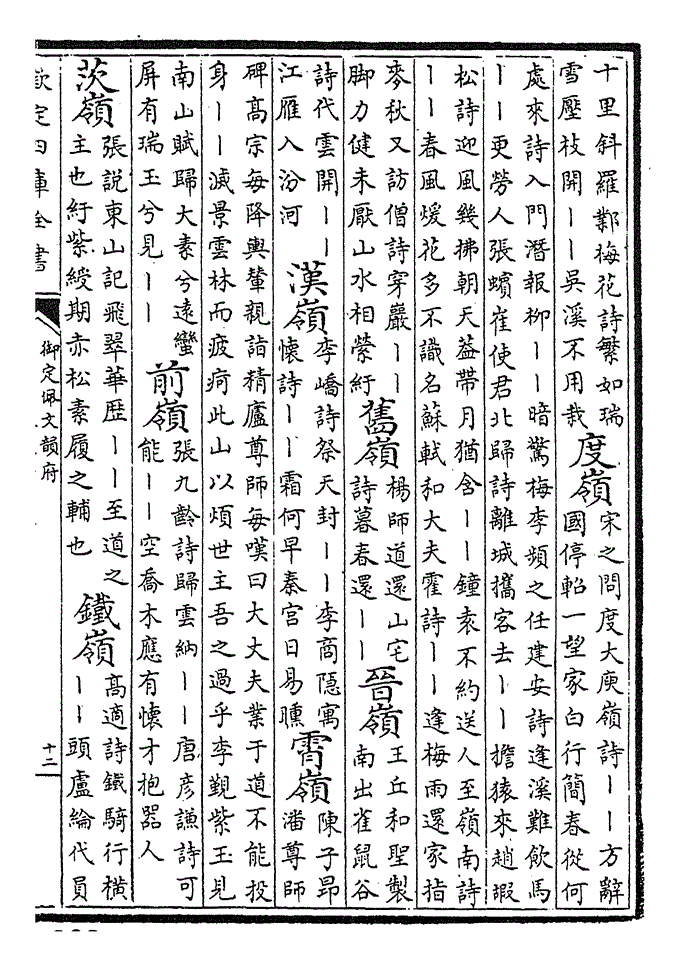 十里斜羅鄴梅花詩繁如瑞
雪壓枝開丨丨吳溪不用栽
度嶺
宋之問度大庾嶺詩丨丨方辭
國停軺一望家白行簡春從何
處來詩入門潛報柳丨丨暗驚梅李頻之任建安詩逢溪難飲馬
丨丨更勞人張蠙崔使君北歸詩離城攜客去丨丨擔猿來趙嘏
松詩迎風幾拂朝天葢帶月猶含丨丨鐘袁不約送人至嶺南詩
丨丨春風煖花多不識名蘇軾和大夫霍詩丨丨逢梅雨還家指
麥秋又訪僧詩穿巖丨丨
脚力健未厭山水相縈紆
舊嶺
楊師道還山宅
詩暮春還丨丨
晉嶺
王丘和聖製
南出雀鼠谷
詩代雲開丨丨
江雁入汾河
漢嶺
李嶠詩祭天封丨丨李商隱寓
懷詩丨丨霜何早秦宮日易曛
霄嶺
陳子昂
潘尊師
碑高宗每降輿輦親詣精廬尊師每嘆曰大丈夫業于道不能投
身丨丨滅景雲林而疲痾此山以煩世主吾之過乎李覯紫玉見
南山賦歸大素兮遠蠻
屏有瑞玉兮見丨丨
前嶺
張九齡詩歸雲納丨丨唐彥謙詩可
能丨丨空喬木應有懷才抱器人
茨嶺
張説東山記飛翠華歴丨丨至道之
主也紆紫綬期赤松素履之輔也
鐵嶺
高適詩鐵騎行橫
丨丨頭盧綸代員
欽定四庫全書
御定佩文韻府
十二